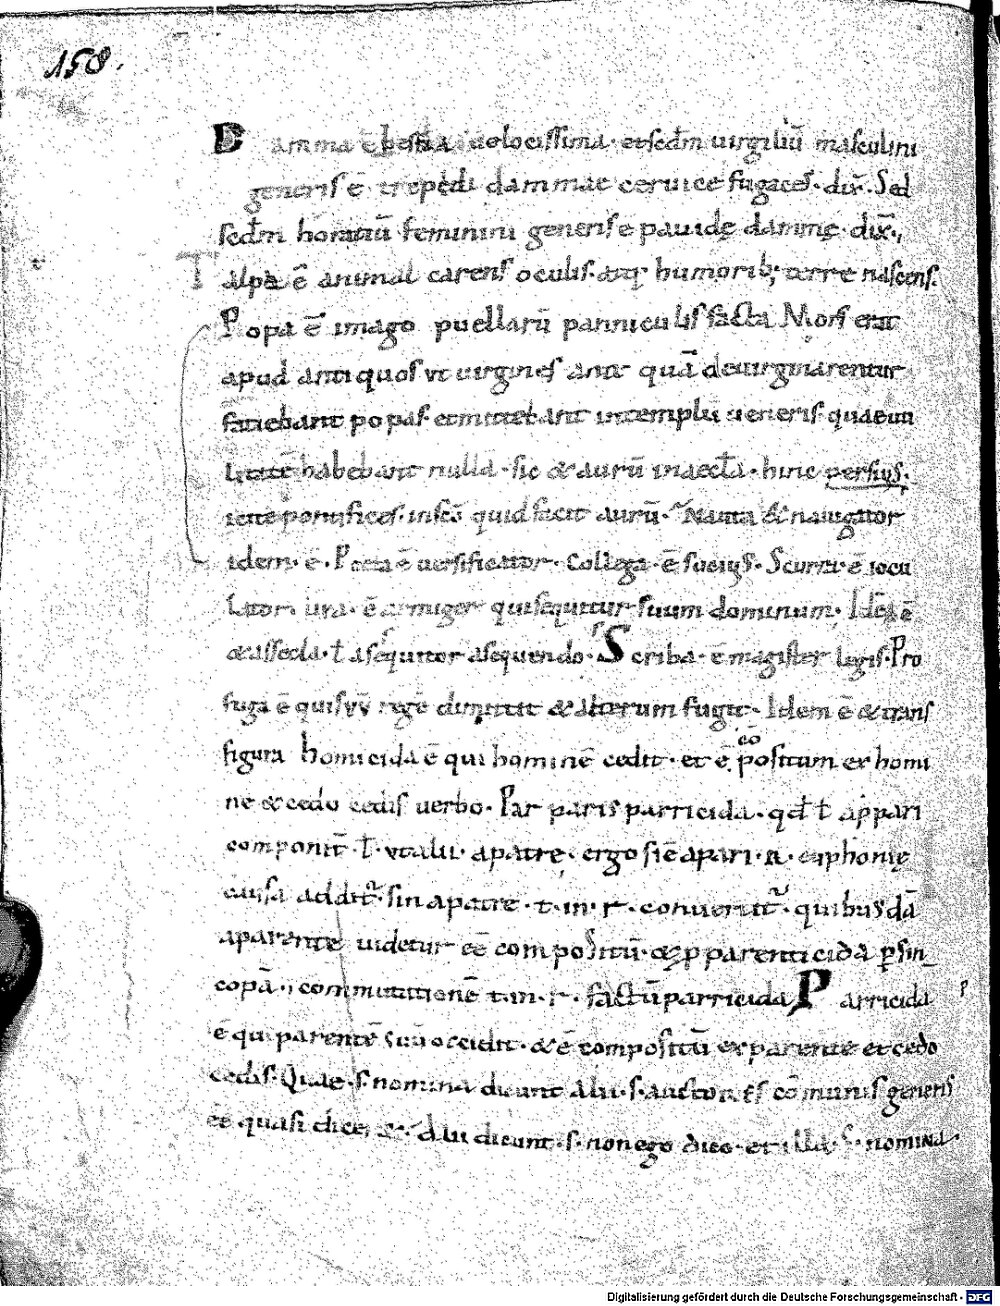 158.
Damma ē bestia uelocissima · et scd̄m uirgiliū masculini
generis ē trepidi dammae ceruice fugaces · dix̄ · Sed
scd̄m horatiū feminini generis e pauidę dammę · dix̄ ·,
Talpa ē animal carens oculis · atq; humorib; terre nascens.
Popa ē imago puellarū panniculis facta Mors erat
apud antiquos vt uirgines ante quā deuirginarentur
faciebant popas et mittebant in templū ueneris qua eun
habebant nulla · sic & aurū inaecta · hinc persius.
pontifices · in scō quid facit aurū · Nauta & nauigator
idem · ē · Poeta ē uersificator · Collega · ē socius · Scurra · ē iocu
lator · ē armiger qui sequitur suum dominum · Idē ē
& assecla · ł asequitor asequendo · Scriba · ē magister legis · Pro
fuga ē quis vv̄ regē dimittit & alterum fugit · Idem ē & trans
figura homicida ē qui hominē cedit · et ē cōpositum ex homi
ne & cedo cedis uerbo · Par paris parricida · qd ł appari
componit̄ ł · vt alii · a patre · ergo si ē a pari · R · euphonię
causa addit̄ · sin a patre · t · in · r · conuertit̄ · quibusdā
a parente uidetur eē compositū · & p parenticida p sin
copā · i commutationē t · in · r · factū parricida Parricida
ē qui parentē suū occidit · & ē compositū ex parente et cedo
cedis · Quae · s · nomina dicunt alii · s · auctores cōmunis generis
eē · quasi dice alii dicunt · s · non ego dico · et illa · s · nomina ·
Digitalisierung gefördert durch die Deutsche Forschungsgemeinschaft - DFG